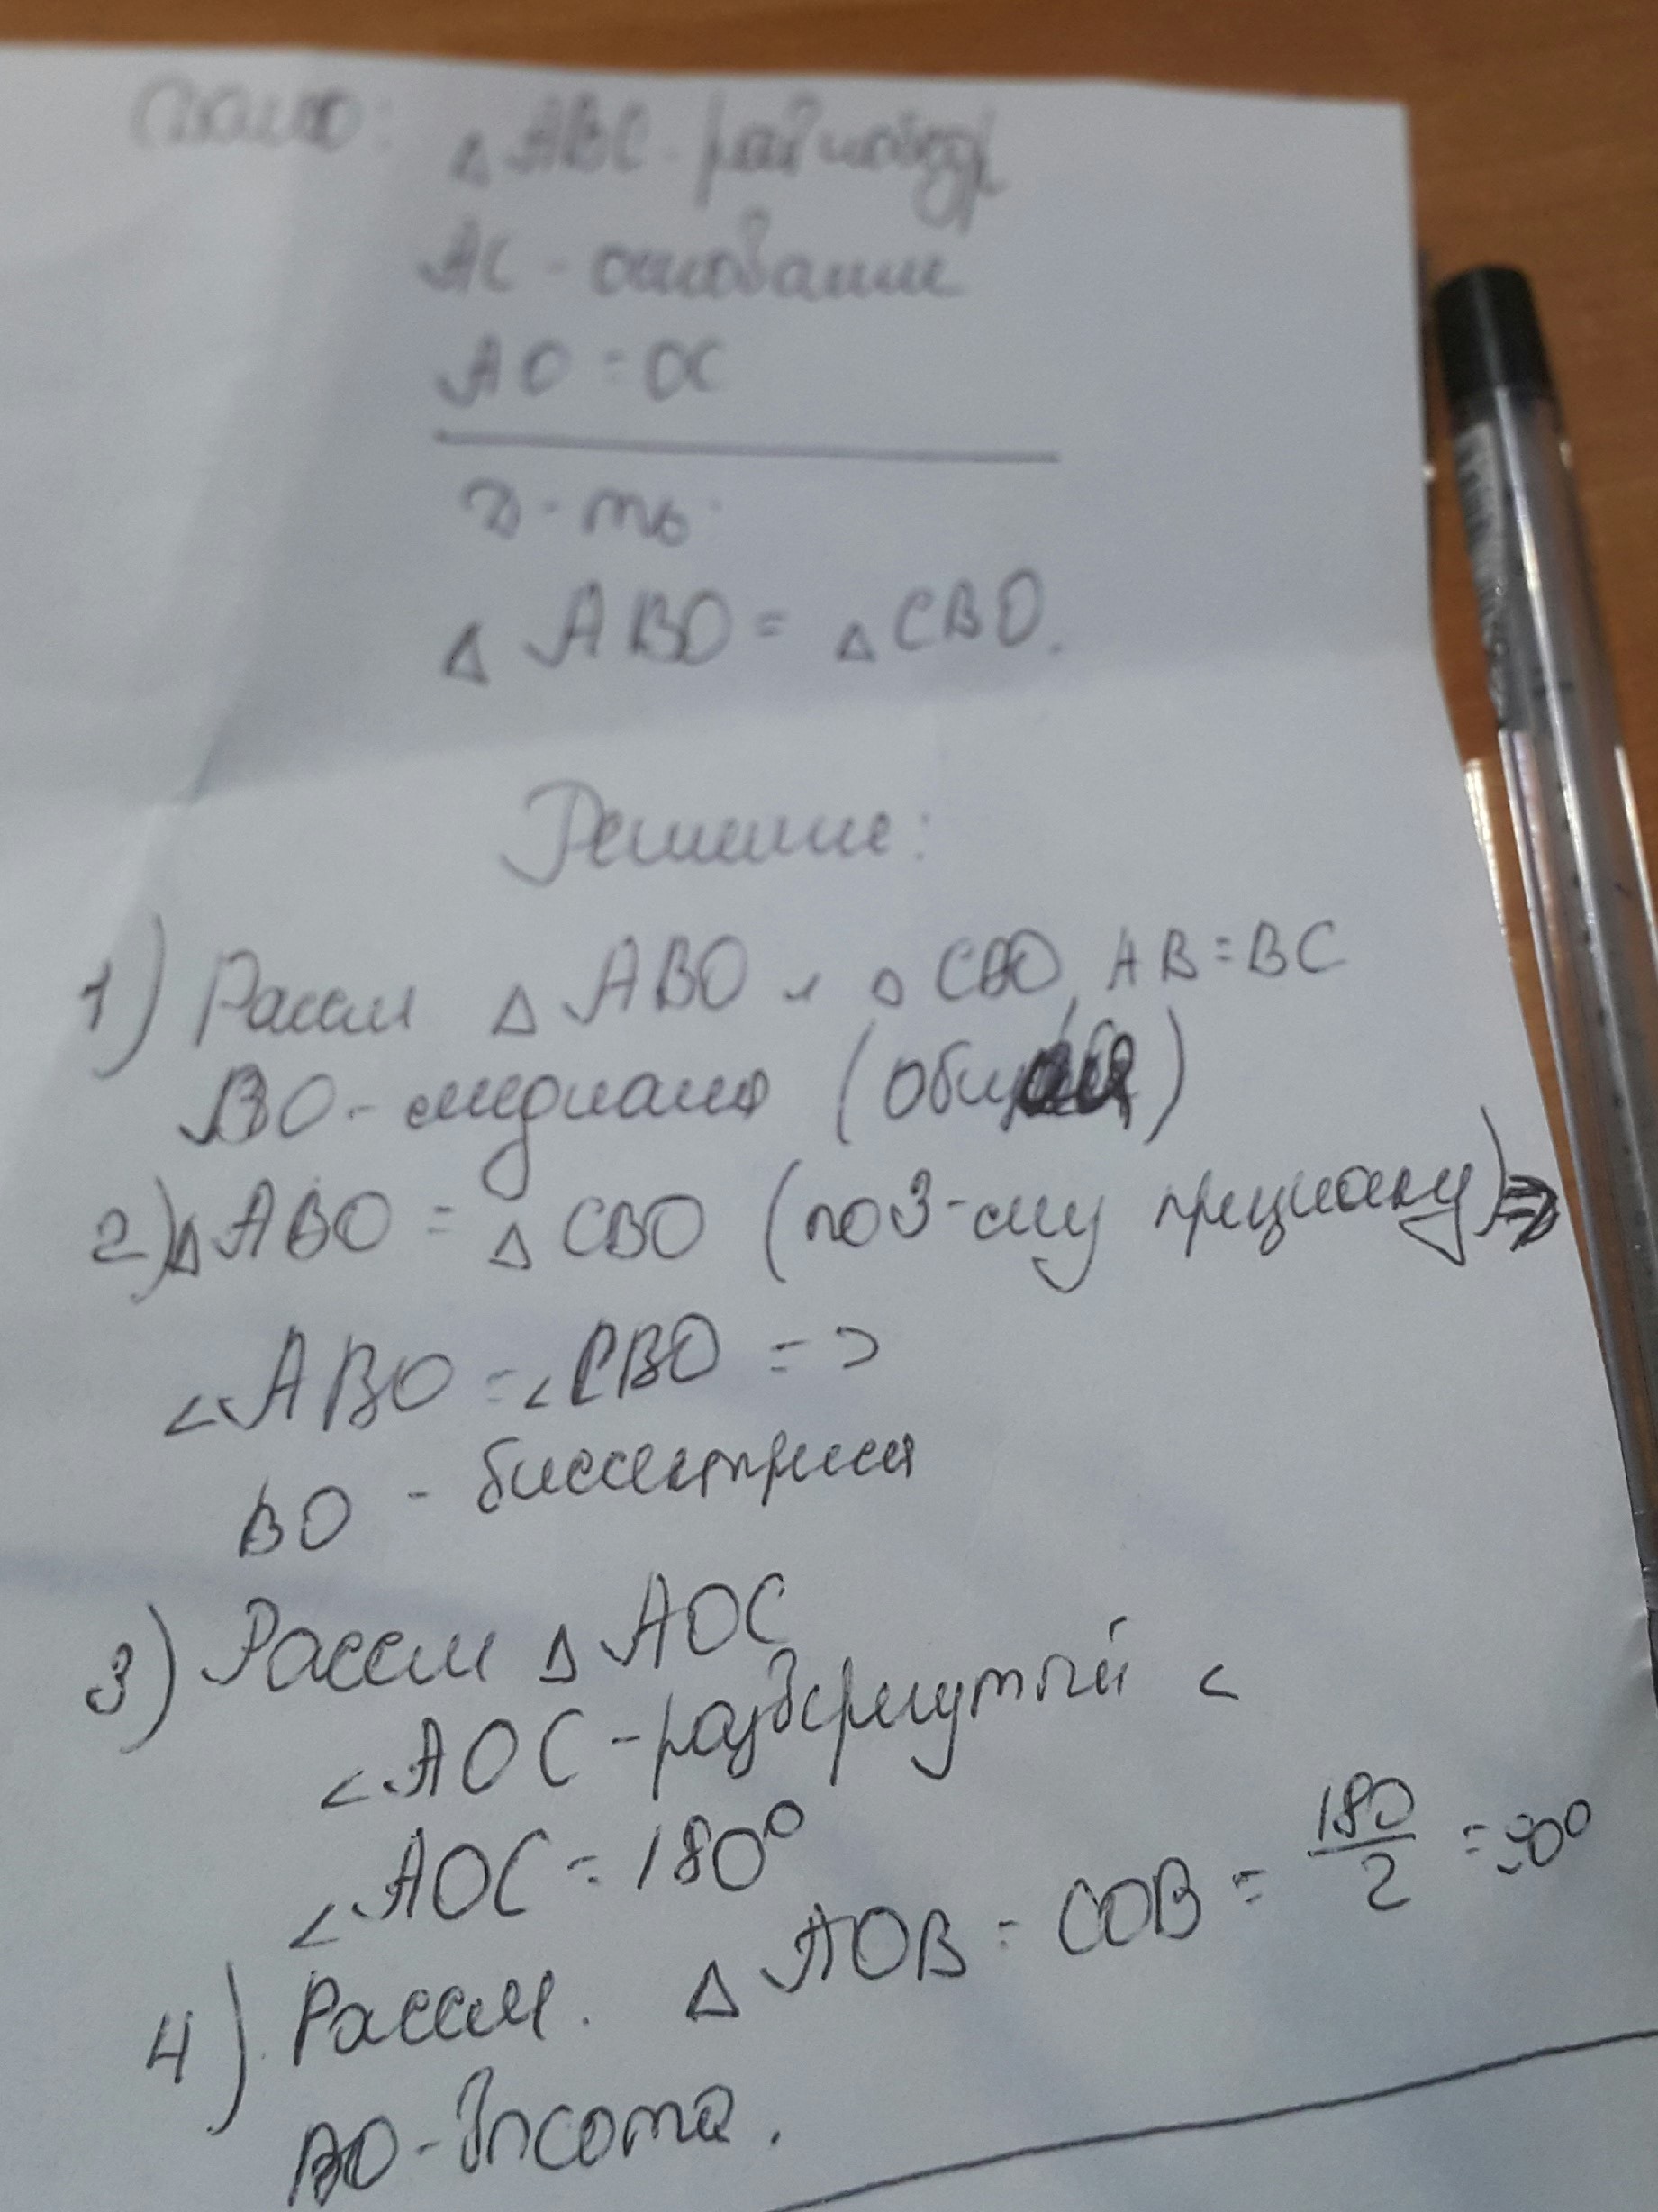 Дано: △ ABC - равнобедр
AC - основание
AO = OC
Д-ть
△ ABO = △ CBO.
Решение:
1) Рассм △ ABO и △ CBO, AB = BC
BO - медиана (общая)
2) △ ABO = △ CBO (по 3-ему признаку) =>
∠ABO = ∠CBO =>
BO - биссектриса
3) Рассм △ AOC
∠AOC - развернутый <
∠AOC = 180°
4) Рассм. △ AOB = COB = 180/2 = 90°
BO - высота.